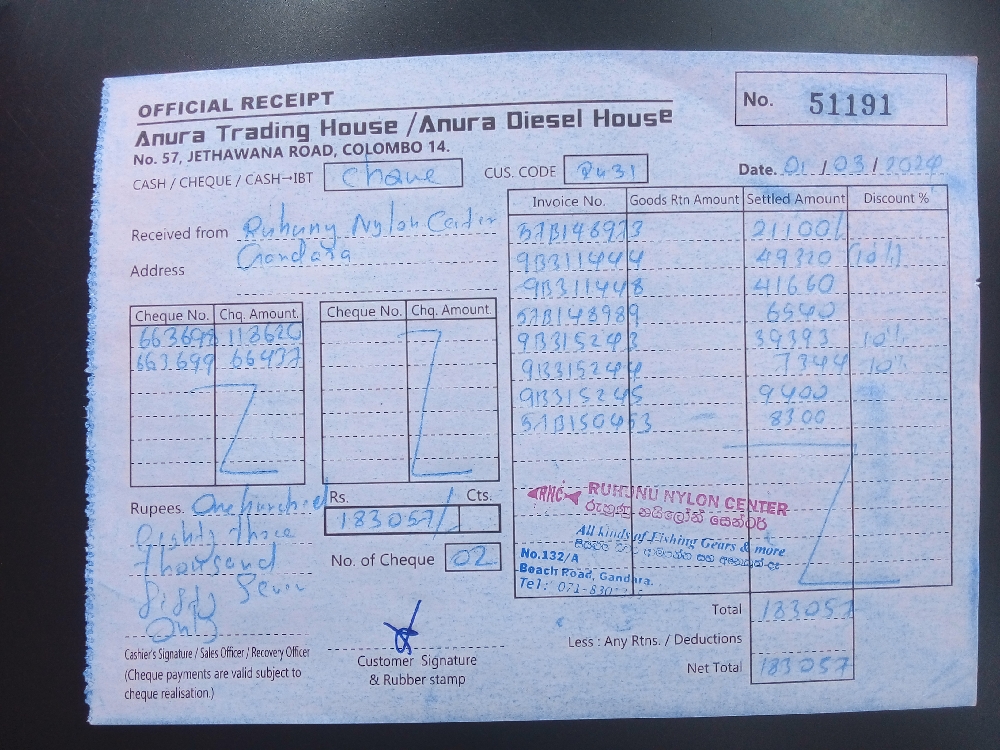 OFFICIAL RECEIPT
No. 51191
Anura Trading House /Anura Diesel House
No. 57, JETHAWANA ROAD, COLOMBO 14.
CASH / CHEQUE / CASH→IBT
CUS. CODE
Date. 01 / 03 / 2024
Received from Ruhunu Nylon Center
Address Gandara
Invoice No. Goods Rtn Amount Settled Amount Discount %
57B148973 21100/
9B311444 49320 10%
9B311448 41660
57B148989 6540
9B315243 39393 10%
9B315244 7344 10%
9B315245 9400
57B150453 8300
Cheque No. Chq. Amount.
663698 118620
663699 66437
Cheque No. Chq. Amount.
Rupees. One hundred
Eighty Three
Thousand
Fifty Seven
Only
Rs. Cts.
183057/
No. of Cheque 02
RNC RUHUNU NYLON CENTER
රුහුණු නයිලෝන් සෙන්ටර්
All kinds of Fishing Gears & more
No.132/A
Beach Road, Gandara.
Tel:
Total 183057
Less : Any Rtns. / Deductions
Net Total 183057
Cashier's Signature / Sales Officer / Recovery Officer
(Cheque payments are valid subject to
cheque realisation.)
Customer Signature
& Rubber stamp